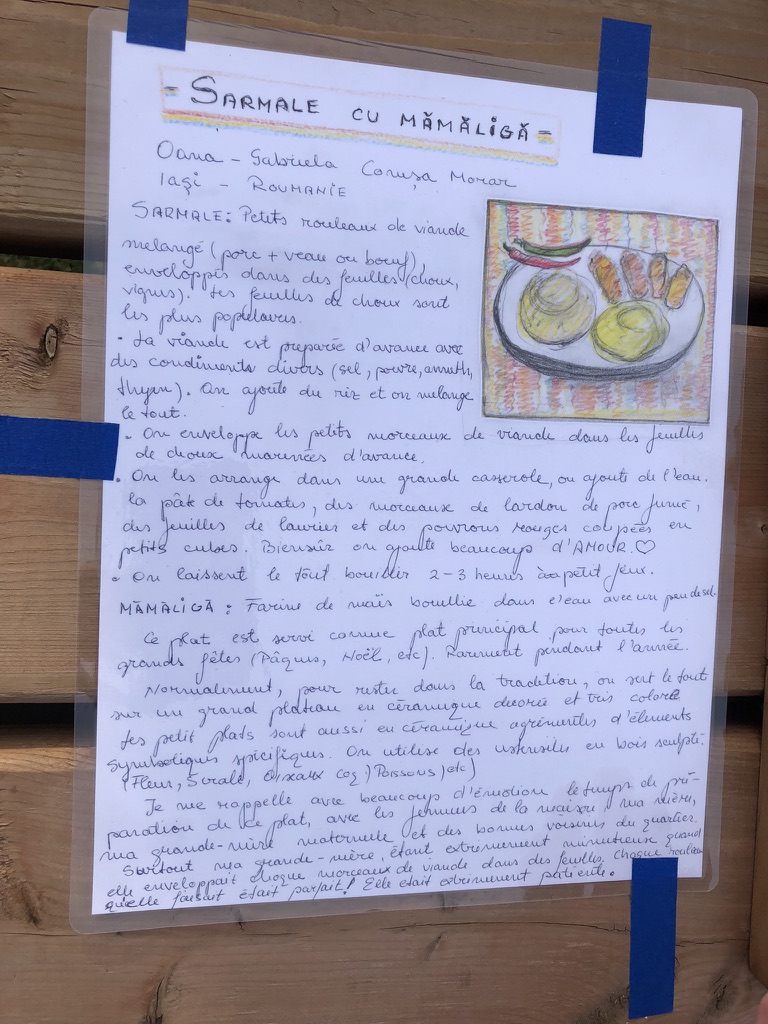 - SARMALE CU MĂMĂLIGĂ -
Oana - Gabriela Corușa Morar
Iași - ROUMANIE
SARMALE: Petits rouleaux de viande
melangé (porc + veau ou bœuf),
enveloppés dans des feuilles (choux,
vignes). Les feuilles de choux sont
les plus populaires.
• La viande est preparée d'avance avec
des condiments divers (sel, poivre, anneth,
thym). On ajoute du riz et on melange
le tout.
• On enveloppe les petits morceaux de viande dans les feuilles
de choux marinées d'avance.
• On les arrange dans une grande casserole, on ajoute de l'eau,
la pâte de tomates, des morceaux de lardon de porc fumé,
des feuilles de lauriers et des pouvrons rouges coupées en
petits cubes. Biensûr on ajoute beaucoup d'AMOUR.♡
• On laissent le tout bouillir 2-3 heures à petit feux.
MĂMĂLIGĂ: Farine de maïs bouillie dans l'eau avec un peu de sel.
Ce plat est servi comme plat principal pour toutes les
grands fêtes (Pâques, Noël, etc). Rarement pendant l'année.
Normalement, pour rester dans la tradition, on sert le tout
sur un grand plateau en céramique decorée et très colorée.
Les petit plats sont aussi en céramique agrémentés d'éléments
symboliques spécifiques. On utilise des ustensiles en bois sculpté.
(Fleurs, Oiseaux coq, Poissons, etc)
Je me rappelle avec beaucoup d'émotion le temps de pré-
paration de ce plat, avec les femmes de la maison: ma mère,
ma grande-mère maternelle et des bonnes voisines du quartier.
Surtout ma grande-mère, étant extrêmement minutieuse quand
elle enveloppait chaque morceaux de viande dans des feuilles. Chaque rouleau
qu'elle faisait était parfait! Elle était extrêmement patiente.